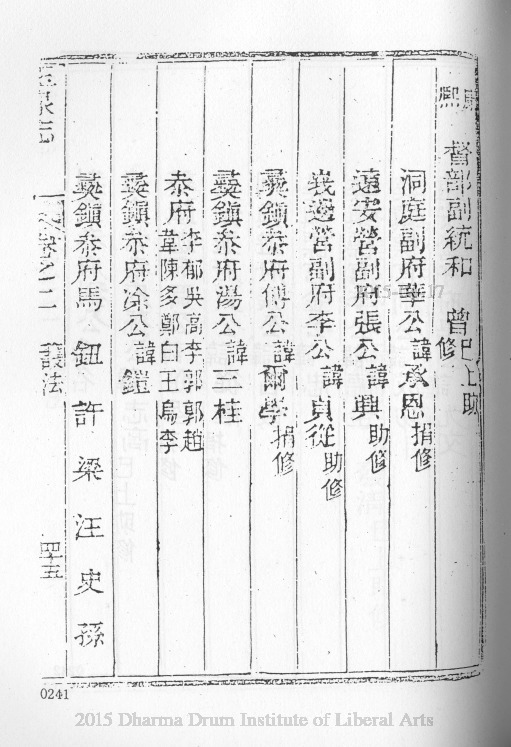 康熙
督部副統和 曾 已上助修
洞庭副府華公諱承恩捐修
遠安營副府張公諱興助修
彝陵營副府李公諱貞從助修
彝鎮叅府傅公諱爾學捐修
彝鎮叅府湯公諱三桂
叅府李郁吳高李郭郭趙韋陳多鄭白王烏李
彝鎮叅府涂公諱鎧
彝鎮叅府馬 鈕 許 梁 汪 史 孫
玉泉志 卷之二 護法 四五
0241
2015 Dharma Drum Institute of Liberal Arts